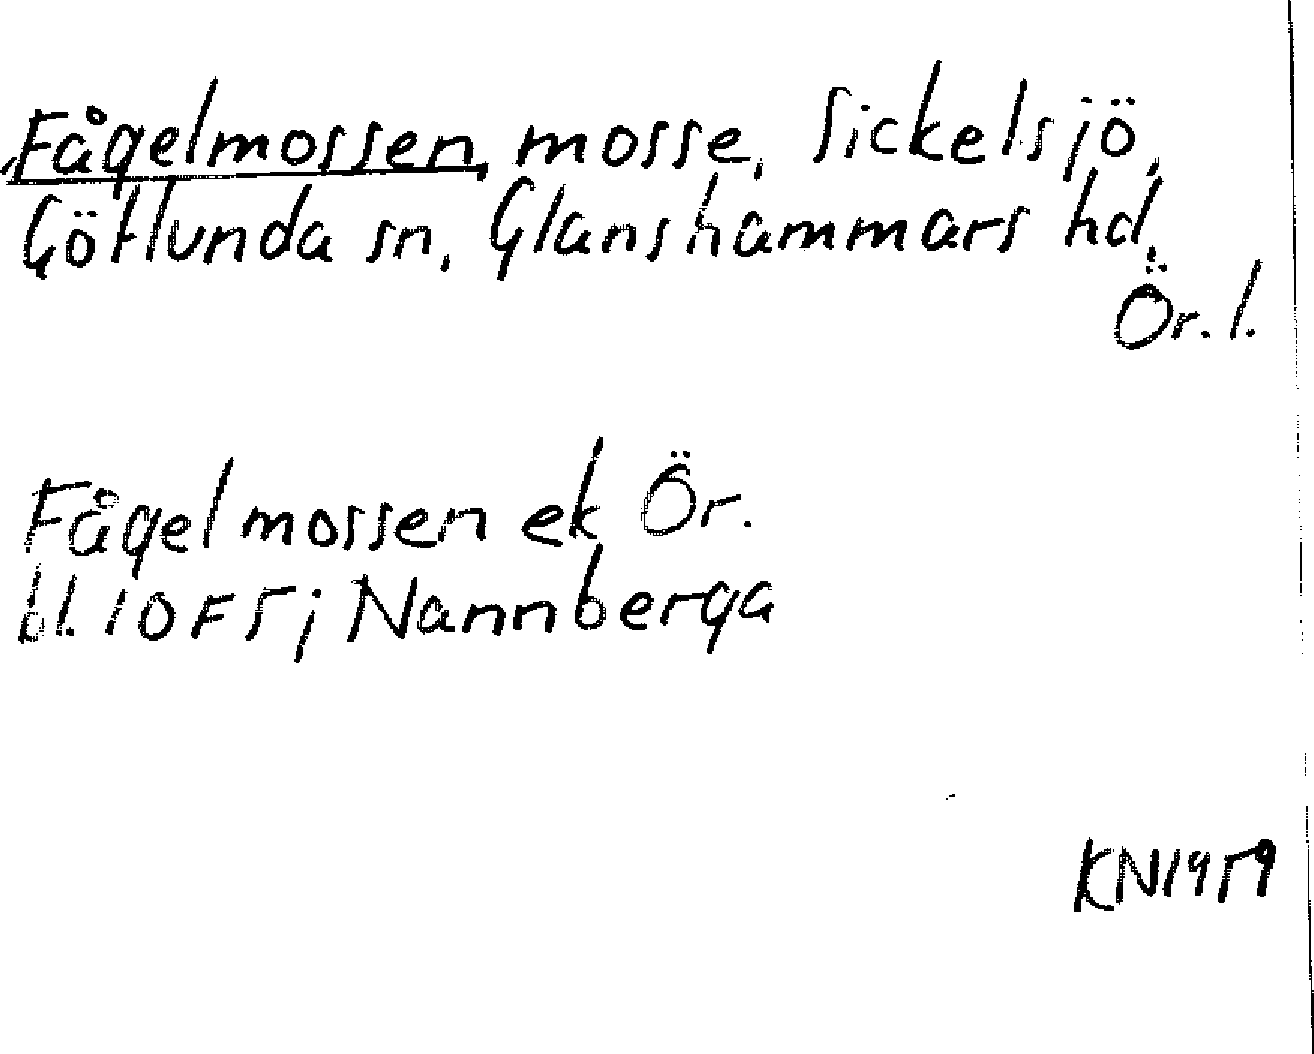 Fågelmossen, mosse, Sickelsjö,
Götlunda sn, Glanshammars hd,
Ör. l.
Fågelmossen ek Ör.
bl. 10F5; Nannberga
KN1959